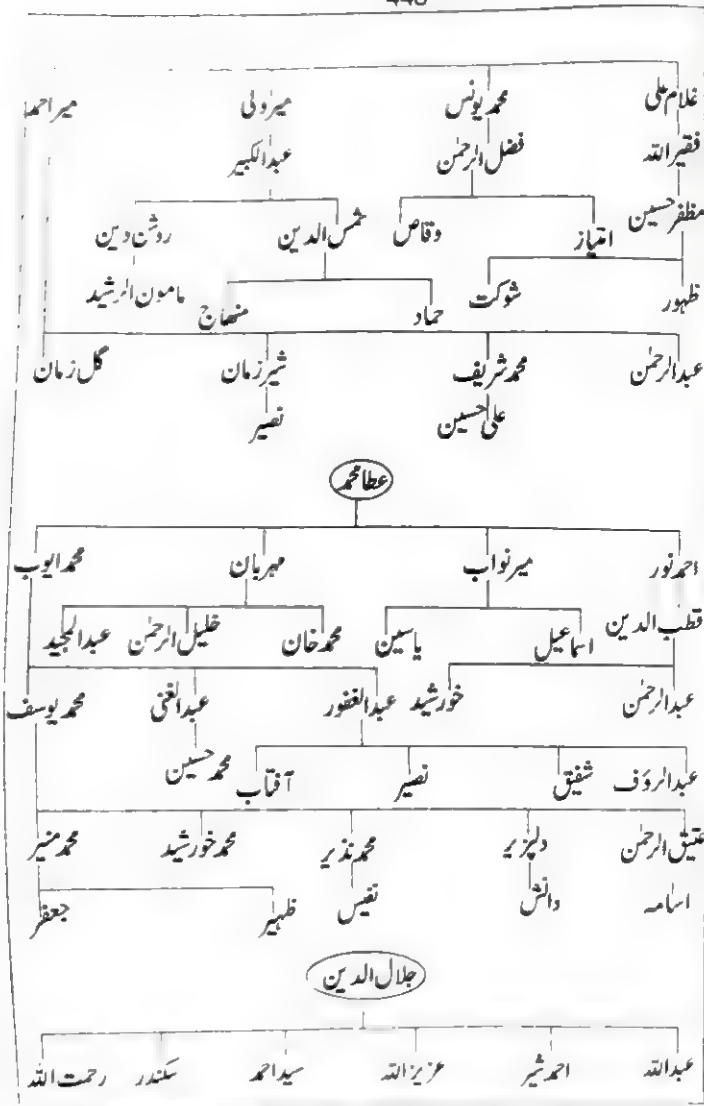 غلام علی محمد یونس میرولی میر احمد
فقیر اللہ فضل الرحمٰن عبدالکبیر
مظفر حسین امتیاز وقاص شمس الدین روشن دین
ظہور شوکت حماد منھاج مامون الرشید
عبدالرحمٰن محمد شریف شیر زمان گل زمان
علی حسین نصیر
عطا محمد
احمد نور میر نواب مہربان محمد ایوب
قطب الدین اسماعیل یاسین محمد خان خلیل الرحمٰن عبدالمجید
عبدالرحمٰن خورشید عبدالغفور عبدالغنی محمد یوسف
عبدالرؤف شفیق نصیر آفتاب محمد حسین
عتیق الرحمٰن دلپزیر محمد نذیر محمد خورشید محمد منیر
اسامہ دانش نفیس ظہیر جعفر
جلال الدین
عبداللہ احمد شیر عزیز اللہ سید احمد سکندر رحمت اللہ